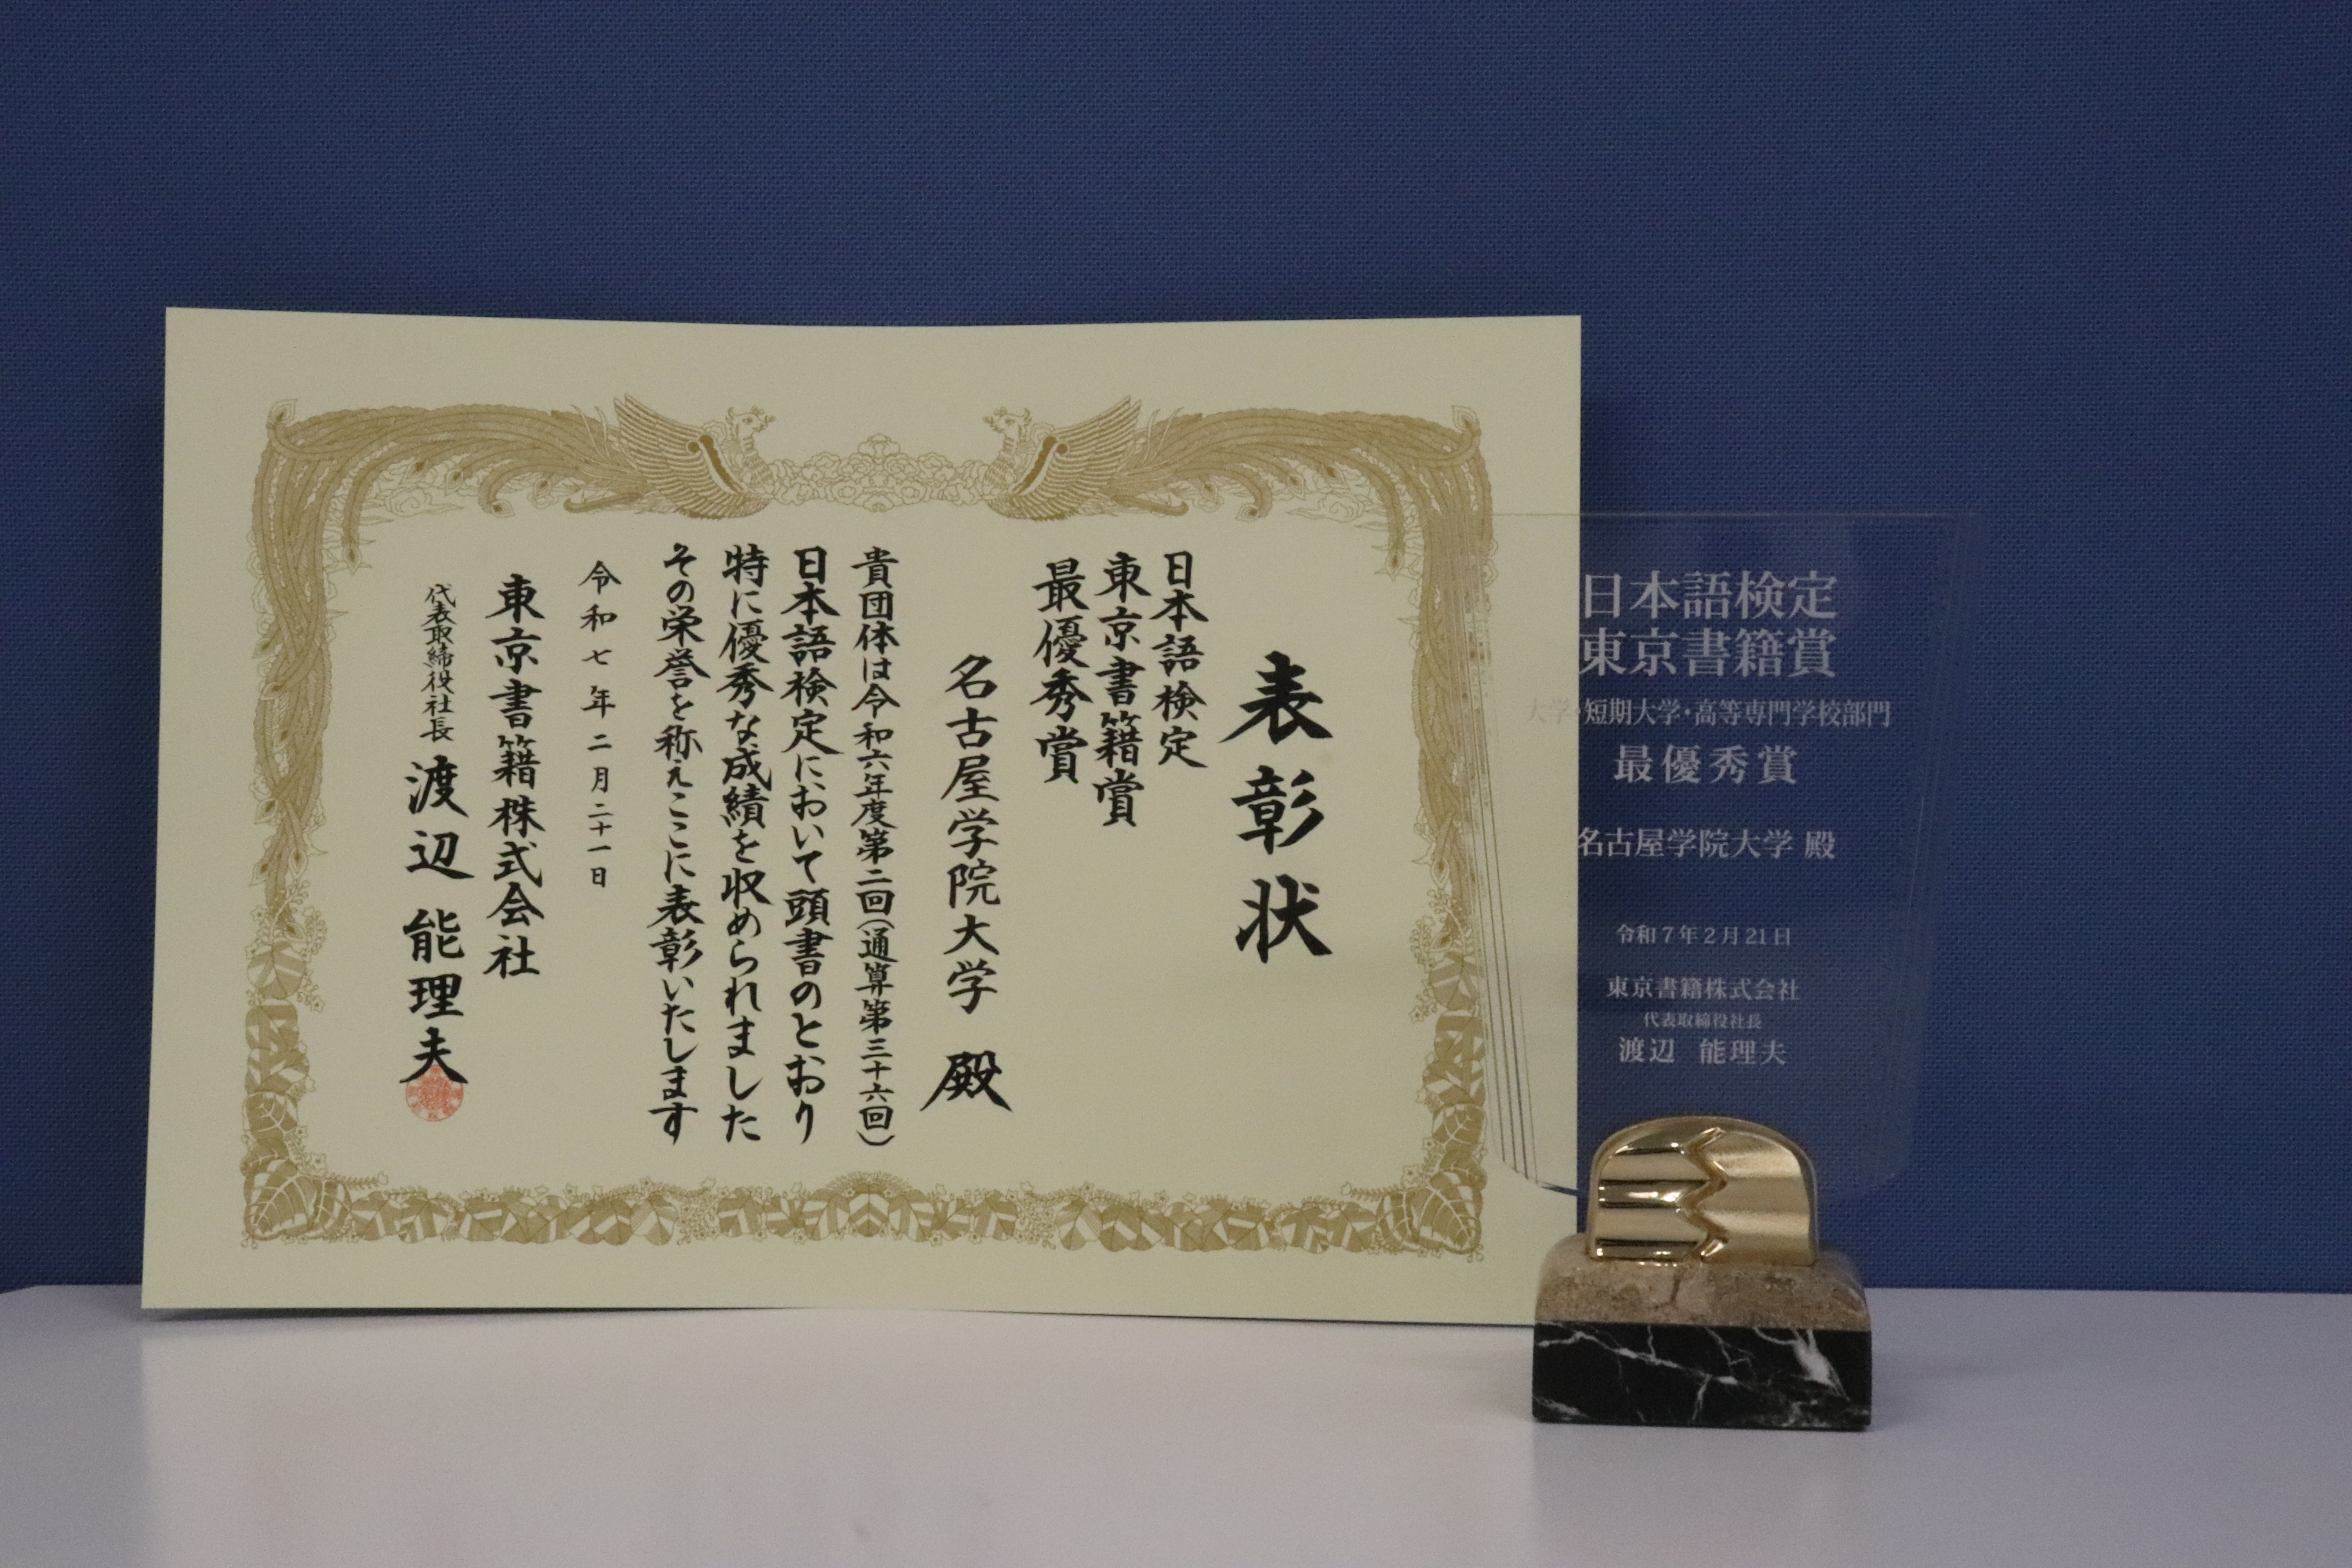 表彰状
日本語検定
東京書籍賞
最優秀賞
名古屋学院大学 殿
貴団体は令和六年度第二回(通算第三十六回)
日本語検定において頭書のとおり
特に優秀な成績を収められました
その栄誉を称えここに表彰いたします
令和七年二月二十一日
東京書籍株式会社
代表取締役社長 渡辺 能理夫
日本語検定
東京書籍賞
大学・短期大学・高等専門学校部門
最優秀賞
名古屋学院大学 殿
令和7年2月21日
東京書籍株式会社
代表取締役社長
渡辺 能理夫